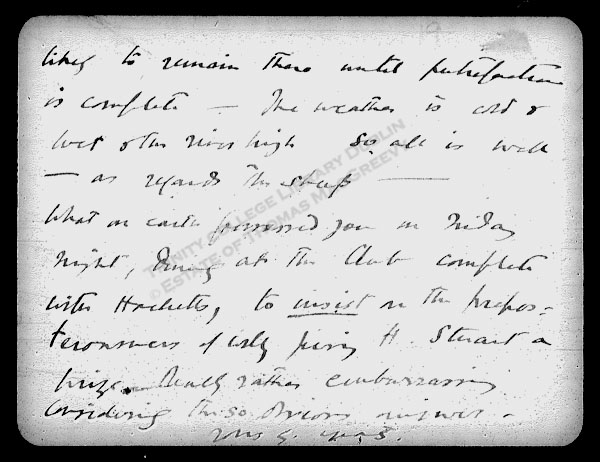 likely to remain there until putrefaction
is complete — The weather is cold &
wet & the river high So all is well
— as regards the sheep —
What on earth possessed you on Friday
night, dining at the Club complete
with Hacketts, to insist on the prepos=
terousness of giving H. Stuart a
prize. Really rather embarrassing
considering the so obvious answer.
TRINITY COLLEGE LIBRARY DUBLIN
© ESTATE OF THOMAS MACGREEVY